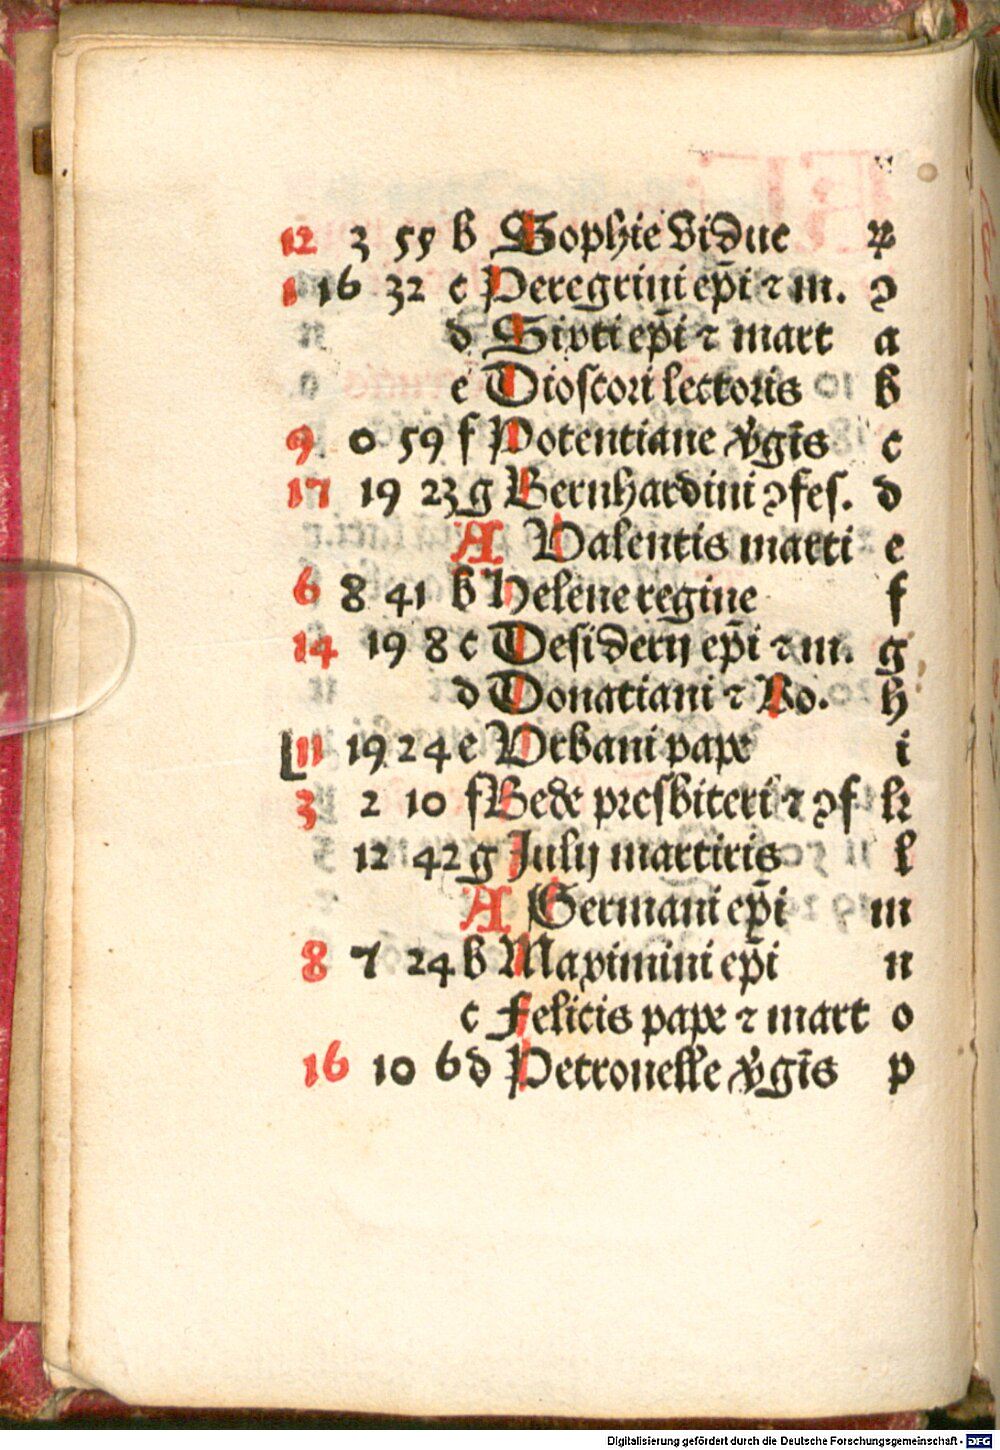 12 3 55 b Sophie vidue ꝝ
1 16 32 c Peregrini ep̄i ⁊ m. ꝯ
d Sixti ep̄i ⁊ mart a
e Dioscori lectoris b
9 0 59 f Potentiane v̓gīs c
17 19 23 g Bernhardini ꝯfes. d
A Valentis marti e
6 8 41 b Helene regine f
14 19 8 c Desiderij ep̄i ⁊ m. g
d Donatiani ⁊ Ro. h
11 19 24 e Vrbani pape i
3 2 10 f Bede presbiteri ⁊ ꝯf k
12 42 g Julij martiris l
A Germani ep̄i m
8 7 24 b Maximini ep̄i n
c Felicis pape ⁊ mart o
16 10 6 d Petronelle v̓gīs p
Digitalisierung gefördert durch die Deutsche Forschungsgemeinschaft - DFG